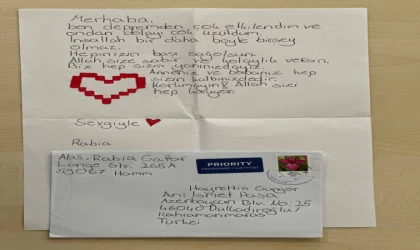 Merhaba,
ben depremden çok etkilendim ve
ondan dolayı çok üzüldüm.
İnşallah bir daha böyle bişey
olmaz.
Hepinizin başı sağolsun.
Allah size sabır ve kolaylık versin.
Biz hep sizin yanınızdayız.
Anneniz ve babanız hep
sizin kalbinizdedir.
Korkmayın Allah sizi
hep koruyor.
Sevgiyle
Rabia
Abs. Rabia Gaffar
Lange Str. 265A
59067 Hamm
PRIORITY
Hayrettin Gungor
An: Ismet Pasa
Azerbaycan Blv. No: 25
46040 Dulkadiroglu/
Kahramanmaras
Türkei